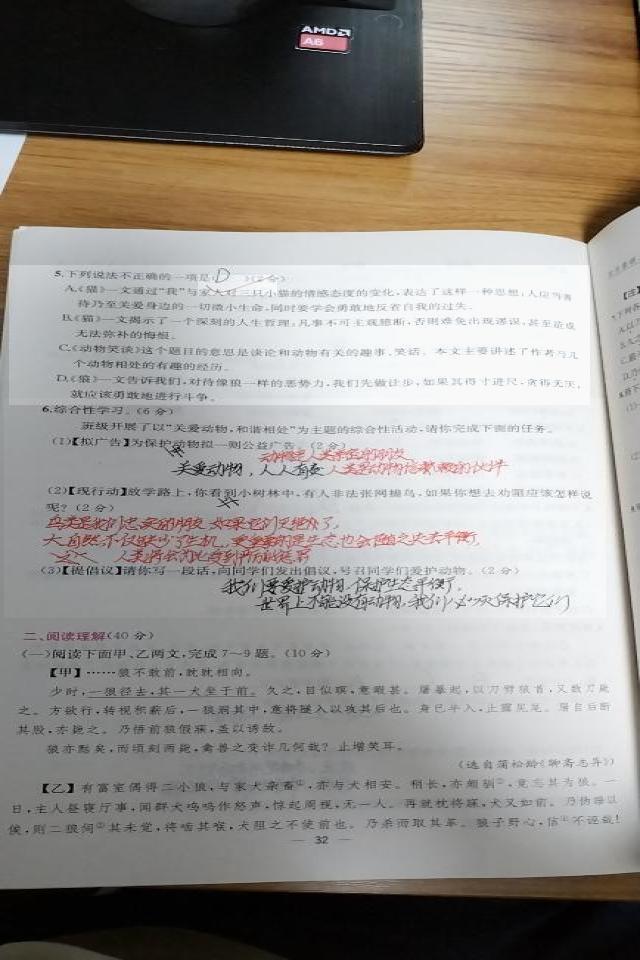 AMD
A6
5.下列说法不正确的一项是( D )(2分)
A.《猫》一文通过“我”与家人对三只小猫的情感态度的变化,表达了这样一种思想:人应当善
待乃至关爱身边的一切微小生命,同时要学会勇敢地反省自我的过失。
B.《猫》一文揭示了一个深刻的人生哲理:凡事不可主观臆断,否则难免出现谬误,甚至造成
无法弥补的悔恨。
C.《动物笑谈》这个题目的意思是谈论和动物有关的趣事、笑话。本文主要讲述了作者与几
个动物相处的有趣的经历。
D.《狼》一文告诉我们,对待像狼一样的恶势力,我们先做让步,如果其得寸进尺,贪得无厌,
就应该勇敢地进行斗争。
6.综合性学习。(6分)
班级开展了以“关爱动物,和谐相处”为主题的综合性活动,请你完成下面的任务。
(1)【拟广告】为保护动物拟一则公益广告。(2分)
动物是人类亲密的朋友
关爱动物,人人有责 人类是动物信赖的伙伴
(2)【现行动】放学路上,你看到小树林中,有人非法张网捕鸟,如果你想去劝阻应该怎样说
呢?(2分)
鸟类是我们忠实的朋友 如果它们灭绝了,
大自然不仅缺少了生机,更重要的是生态也会随之失去平衡,
人类将会为此受到
(3)【提倡议】请你写一段话,向同学们发出倡议,号召同学们爱护动物。(2分)
我们要爱护动物,保护生态平衡,
世界上不能没有动物,我们必须保护它们
二、阅读理解(40分)
(一)阅读下面甲、乙两文,完成7~9题。(10分)
【甲】……狼不敢前,眈眈相向。
少时,一狼径去,其一犬坐于前。久之,目似瞑,意暇甚。屠暴起,以刀劈狼首,又数刀毙
之。方欲行,转视积薪后,一狼洞其中,意将隧入以攻其后也。身已半入,止露尻尾。屠自后断
其股,亦毙之。乃悟前狼假寐,盖以诱敌。
狼亦黠矣,而顷刻两毙,禽兽之变诈几何哉?止增笑耳。
(选自蒲松龄《聊斋志异》)
【乙】有富室偶得二小狼,与家犬杂畜①,亦与犬相安。稍长,亦颇驯②,竟忘其为狼。一
日,主人昼寝厅事,闻群犬呜呜作怒声,惊起周视,无一人。再就枕将寐,犬又如前。乃伪睡以
俟,则二狼伺③其未觉,将啮其喉,犬阻之不使前也。乃杀而取其革。狼子野心,信④不诬哉!
— 32 —